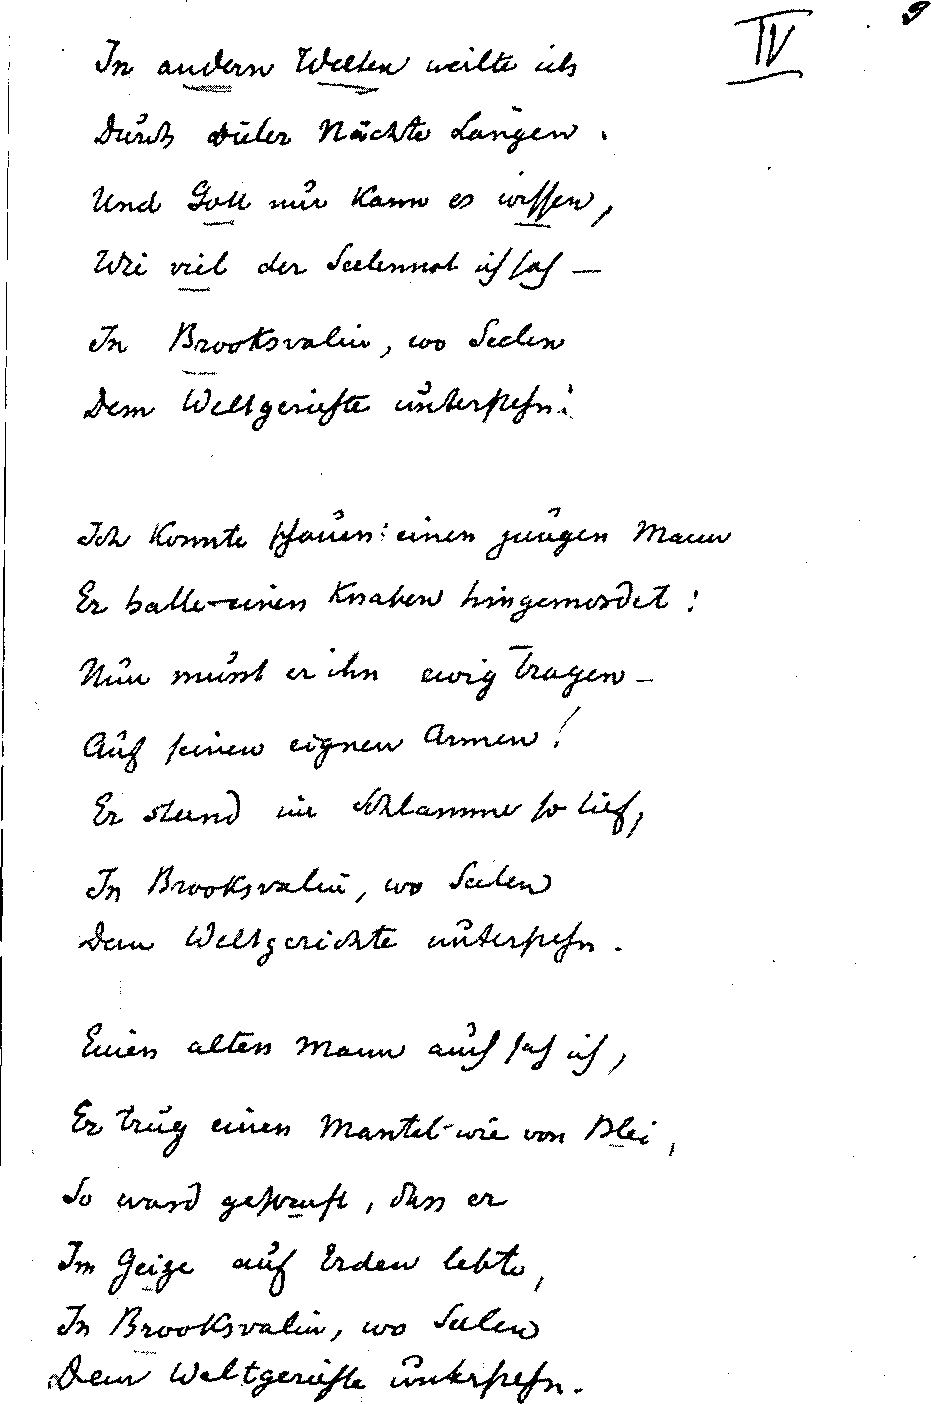 IV 9
In andern Welten weilte ich
Durch vieler Nächte Längen.
Und Gott nur kann es wissen,
Wie viel der Seelennot ich sah –
In Brooksvalin, wo Seelen
Dem Weltgerichte unterstehn.

Ich konnte schauen: einen jungen Mann
Er hatte einen Knaben hingemordet:
Nun musst er ihn ewig tragen –
Auf seinen eignen Armen!
Er stund im Schlamme so tief,
In Brooksvalin, wo Seelen
Dem Weltgerichte unterstehn.

Einen alten Mann auch sah ich,
Er trug einen Mantel wie von Blei,
So ward gestraft, dass er
Im Geize auf Erden lebte,
In Brooksvalin, wo Seelen
Dem Weltgerichte unterstehn.